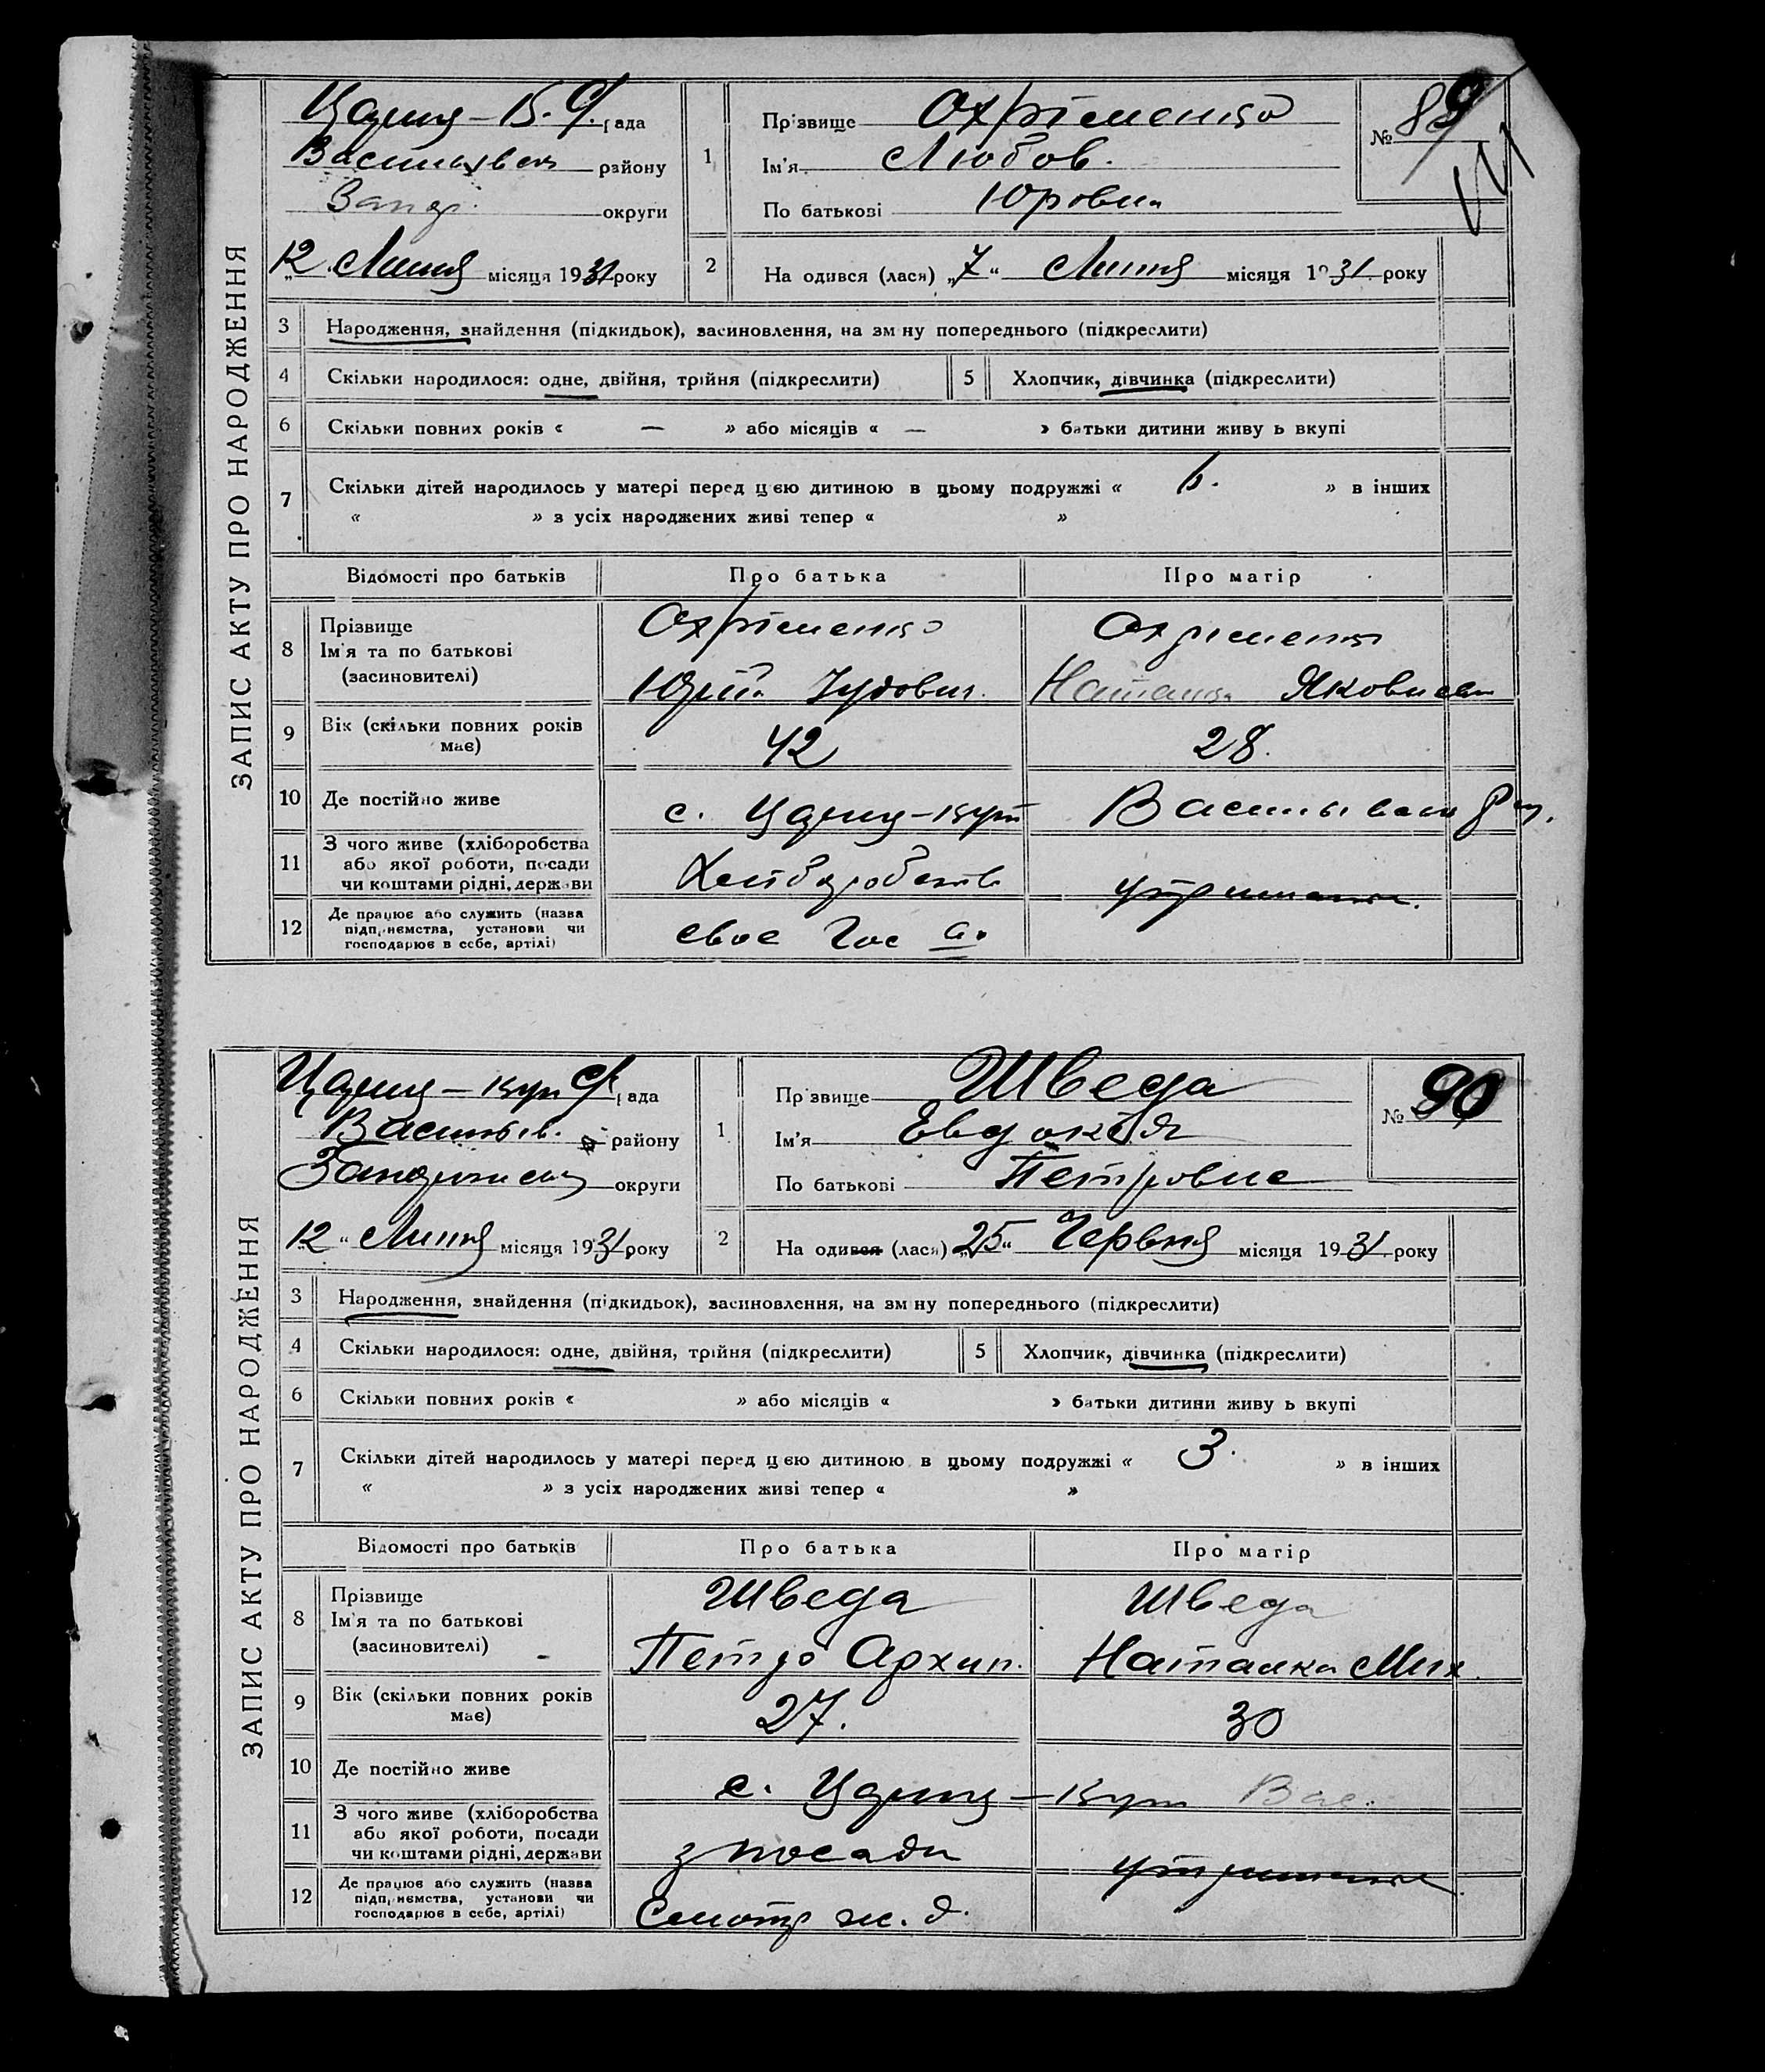 ЗАПИС АКТУ ПРО НАРОДЖЕННЯ
рада
Васильївськ району
Запор. округи
12 Липня місяця 1931 року
1 Прізвище Охріменко
Ім'я Любов.
По батькові Юровна
№ 89
2 На одився (лася) „7“ Липня місяця 1931 року
3 Народження, знайдення (підкидьок), засиновлення, на зм ну попереднього (підкреслити)
4 Скільки народилося: одне, двійня, трійня (підкреслити) 5 Хлопчик, дівчинка (підкреслити)
6 Скільки повних років « — » або місяців « — » батьки дитини живу ь вкупі
7 Скільки дітей народилось у матері перед цією дитиною в цьому подружжі « » в інших
« » з усіх народжених живі тепер « »
Відомості про батьків Про батька Про матір
8 Прізвище Охріменко Охріменко
Ім'я та по батькові
(засиновителі) Юрій Наталка Яковлевн
9 Вік (скільки повних років має) 42 28.
10 Де постійно живе с. Цариц-Кут
11 З чого живе (хліборобства
або якої роботи, посади
чи коштами рідні, держави Хліборобств утриманка.
12 Де працює або служить (назва
підприємства, установи чи
господарює в себе, артілі) своє гос
ЗАПИС АКТУ ПРО НАРОДЖЕННЯ
Цариц-Кут С/рада
Васильїв. району
округи
12 “ Липня місяця 1931 року
1 Прізвище Шведа
Ім'я Евдокія
По батькові Петровна
№ 90
2 На одився (лася) „25“ Червня місяця 1931 року
3 Народження, знайдення (підкидьок), засиновлення, на зм ну попереднього (підкреслити)
4 Скільки народилося: одне, двійня, трійня (підкреслити) 5 Хлопчик, дівчинка (підкреслити)
6 Скільки повних років « » або місяців « » батьки дитини живу ь вкупі
7 Скільки дітей народилось у матері перед цією дитиною в цьому подружжі « 3. » в інших
« » з усіх народжених живі тепер « »
Відомості про батьків Про батька Про матір
8 Прізвище Шведа Шведа
Ім'я та по батькові
(засиновителі) Петро Архип. Наталка Мих.
9 Вік (скільки повних років має) 27. 30
10 Де постійно живе с. Цариц-Кут Вас.
11 З чого живе (хліборобства
або якої роботи, посади
чи коштами рідні, держави з посади утриманка
12 Де працює або служить (назва
підприємства, установи чи
господарює в себе, артілі) ж. д.